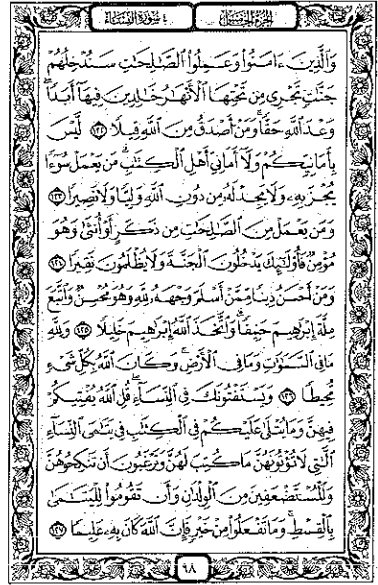 الجزء الخامس
سورة النساء
وَالَّذِينَ ءَامَنُوا۟ وَعَمِلُوا۟ الصَّـٰلِحَـٰتِ سَنُدْخِلُهُمْ
جَنَّـٰتٍ تَجْرِى مِن تَحْتِهَا الْأَنْهَـٰرُ خَـٰلِدِينَ فِيهَآ أَبَدًا ۖ
وَعْدَ اللَّهِ حَقًّا ۚ وَمَنْ أَصْدَقُ مِنَ اللَّهِ قِيلًا ١٢٢ لَّيْسَ
بِأَمَانِيِّكُمْ وَلَآ أَمَانِىِّ أَهْلِ الْكِتَـٰبِ ۗ مَن يَعْمَلْ سُوٓءًا
يُجْزَ بِهِۦ وَلَا يَجِدْ لَهُۥ مِن دُونِ اللَّهِ وَلِيًّا وَلَا نَصِيرًا ١٢٣
وَمَن يَعْمَلْ مِنَ الصَّـٰلِحَـٰتِ مِن ذَكَرٍ أَوْ أُنثَىٰ وَهُوَ
مُؤْمِنٌ فَأُو۟لَـٰٓئِكَ يَدْخُلُونَ الْجَنَّةَ وَلَا يُظْلَمُونَ نَقِيرًا ١٢٤
وَمَنْ أَحْسَنُ دِينًا مِّمَّنْ أَسْلَمَ وَجْهَهُۥ لِلَّهِ وَهُوَ مُحْسِنٌ وَاتَّبَعَ
مِلَّةَ إِبْرَٰهِيمَ حَنِيفًا ۗ وَاتَّخَذَ اللَّهُ إِبْرَٰهِيمَ خَلِيلًا ١٢٥ وَلِلَّهِ
مَا فِى السَّمَـٰوَٰتِ وَمَا فِى الْأَرْضِ ۚ وَكَانَ اللَّهُ بِكُلِّ شَىْءٍ
مُّحِيطًا ١٢٦ وَيَسْتَفْتُونَكَ فِى النِّسَآءِ ۖ قُلِ اللَّهُ يُفْتِيكُمْ
فِيهِنَّ وَمَا يُتْلَىٰ عَلَيْكُمْ فِى الْكِتَـٰبِ فِى يَتَـٰمَى النِّسَآءِ
الَّـٰتِى لَا تُؤْتُونَهُنَّ مَا كُتِبَ لَهُنَّ وَتَرْغَبُونَ أَن تَنكِحُوهُنَّ
وَالْمُسْتَضْعَفِينَ مِنَ الْوِلْدَٰنِ وَأَن تَقُومُوا۟ لِلْيَتَـٰمَىٰ
بِالْقِسْطِ ۚ وَمَا تَفْعَلُوا۟ مِنْ خَيْرٍ فَإِنَّ اللَّهَ كَانَ بِهِۦ عَلِيمًا ١٢٧
٩٨